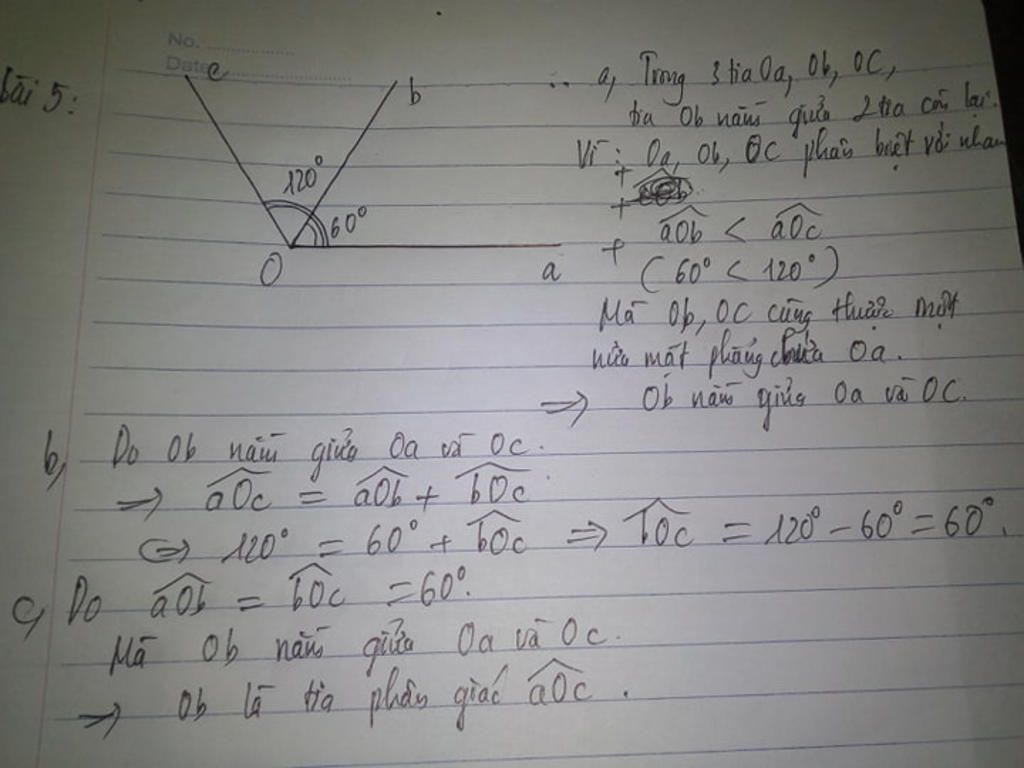 No.
Date
Bài 5:
c
b
120°
60°
O
a
a, Trong 3 tia Oa, Ob, OC,
tia Ob nằm giữa 2 tia còn lại.
Vì: Oa, Ob, OC phân biệt với nhau
+
+
+ aOb < aOc
(60° < 120°)
Mà Ob, OC cùng thuộc một
nửa mặt phẳng chứa Oa.
=> Ob nằm giữa Oa và OC.
b, Do Ob nằm giữa Oa và Oc.
=> aOc = aOb + bOc
<=> 120° = 60° + bOc => bOc = 120° - 60° = 60°.
c, Do aOb = bOc = 60°.
Mà Ob nằm giữa Oa và Oc.
=> Ob là tia phân giác aOc.